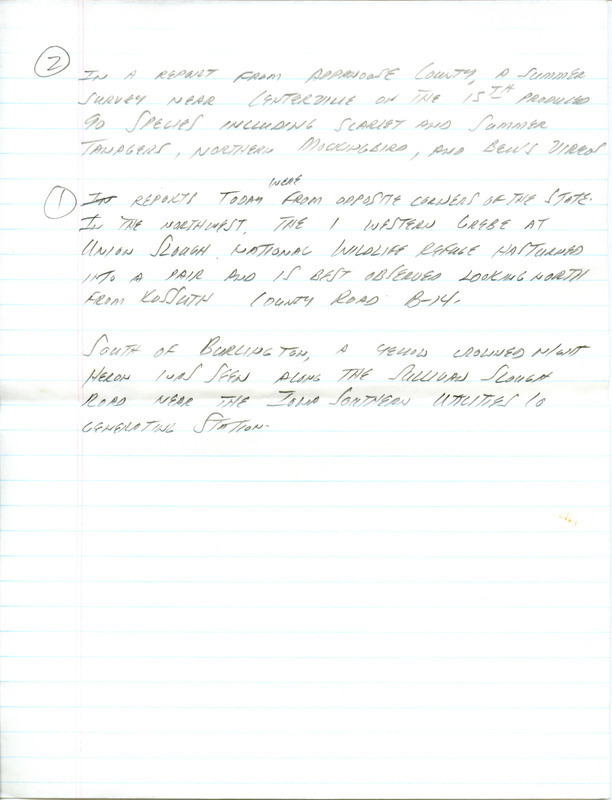 2 IN A REPORT FROM APPANOOSE COUNTY, A SUMMER
SURVEY NEAR CENTERVILLE ON THE 15TH PRODUCED
90 SPECIES INCLUDING SCARLET AND SUMMER
TANAGERS, NORTHERN MOCKINGBIRD, AND BELL'S VIREOS
1 IN REPORTS TODAY WERE FROM OPPOSITE CORNERS OF THE STATE.
IN THE NORTHWEST, THE 1 WESTERN GREBE AT
UNION SLOUGH NATIONAL WILDLIFE REFUGE HAS TURNED
INTO A PAIR AND IS BEST OBSERVED LOOKING NORTH
FROM KOSSUTH COUNTY ROAD B-14.
SOUTH OF BURLINGTON, A YELLOW CROWNED NIGHT
HERON WAS SEEN ALONG THE SULLIVAN SLOUGH
ROAD NEAR THE IOWA SOUTHERN UTILITIES CO
GENERATING STATION.